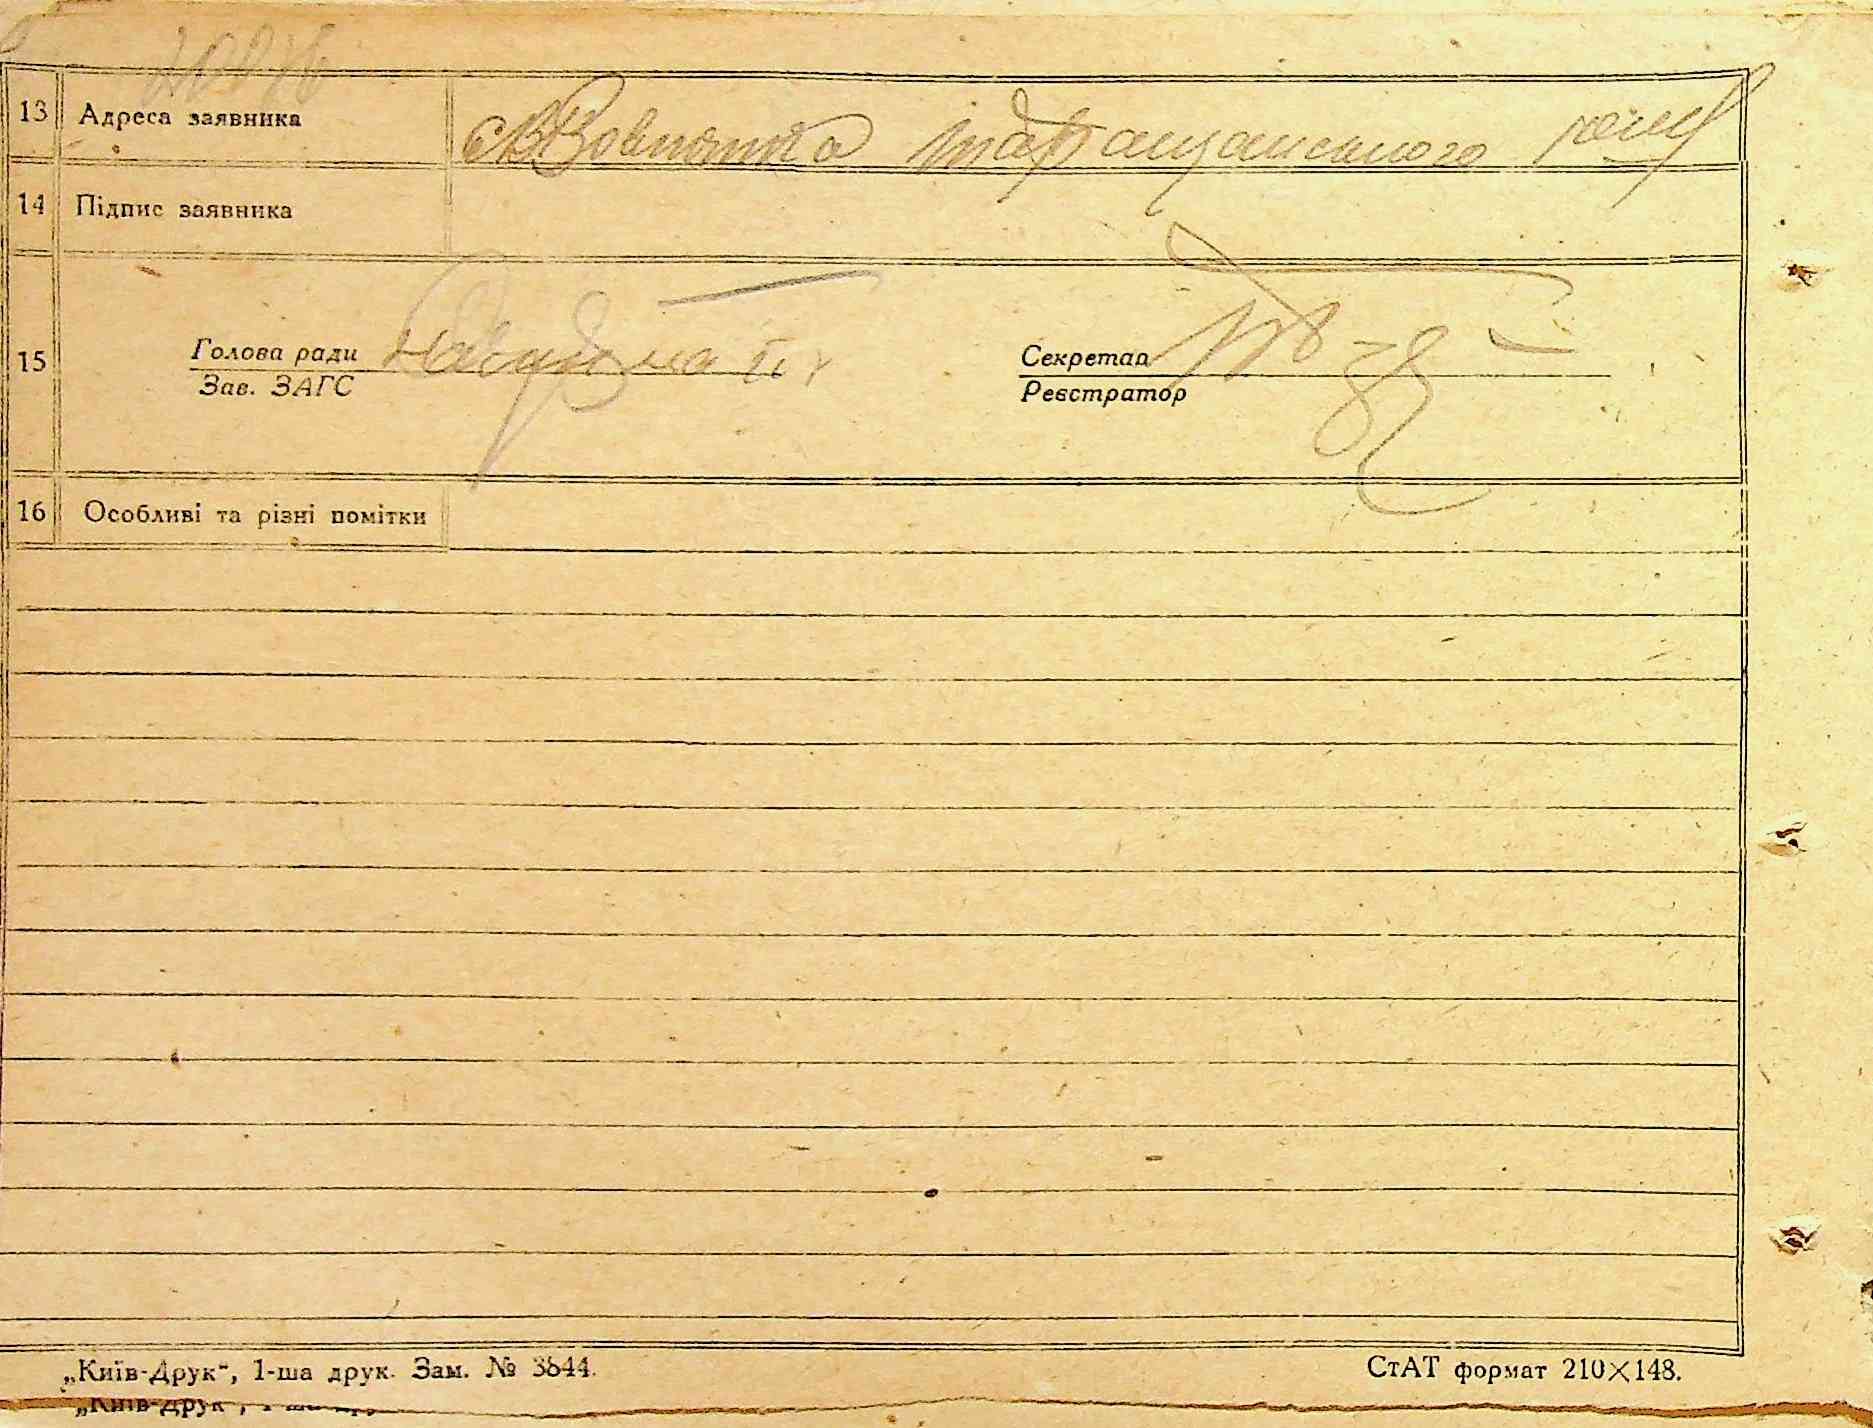 13 Адреса заявника с Вовнянка Таращанського
14 Підпис заявника
15
Голова ради
Зав. ЗАГС
Секретар
Реєстратор
16 Особливі та різні помітки
„Київ-Друк“, 1-ша друк. Зам. № 3844.
СтАТ формат 210×148.
„Київ-Друк“, 1-ша